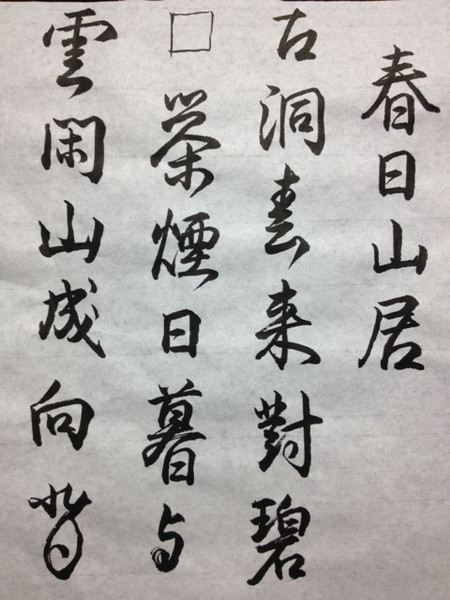 春日山居
古洞春来對碧
□茶煙日暮与
雲閑山成向背